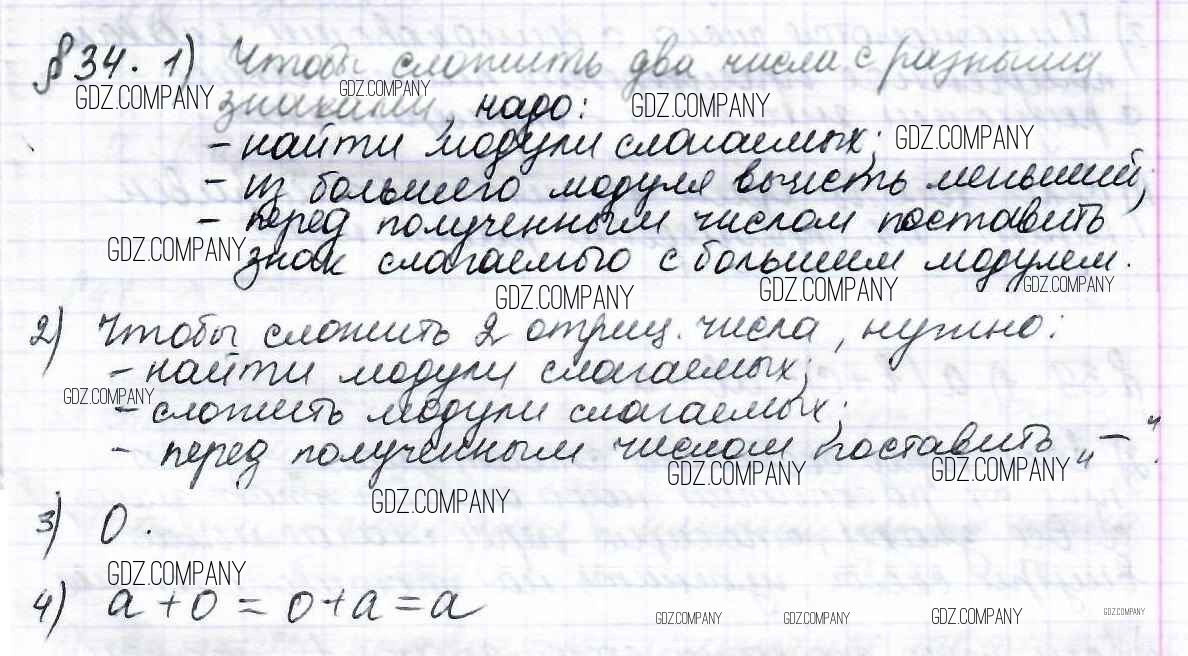 §34. 1) Чтобы сложить два числа с разными
GDZ.COMPANY GDZ.COMPANY
знаками, надо: GDZ.COMPANY
- найти модули слагаемых; GDZ.COMPANY
- из большего модуля вычесть меньший;
- перед полученным числом поставить
GDZ.COMPANY знак слагаемого с большим модулем.
GDZ.COMPANY GDZ.COMPANY GDZ.COMPANY
2) Чтобы сложить 2 отриц. числа, нужно:
- найти модули слагаемых;
GDZ.COMPANY
- сложить модули слагаемых;
- перед полученным числом поставить „—".
GDZ.COMPANY GDZ.COMPANY
GDZ.COMPANY
3) 0.
GDZ.COMPANY
4) a + 0 = 0 + a = a
GDZ.COMPANY GDZ.COMPANY GDZ.COMPANY GDZ.COMPANY